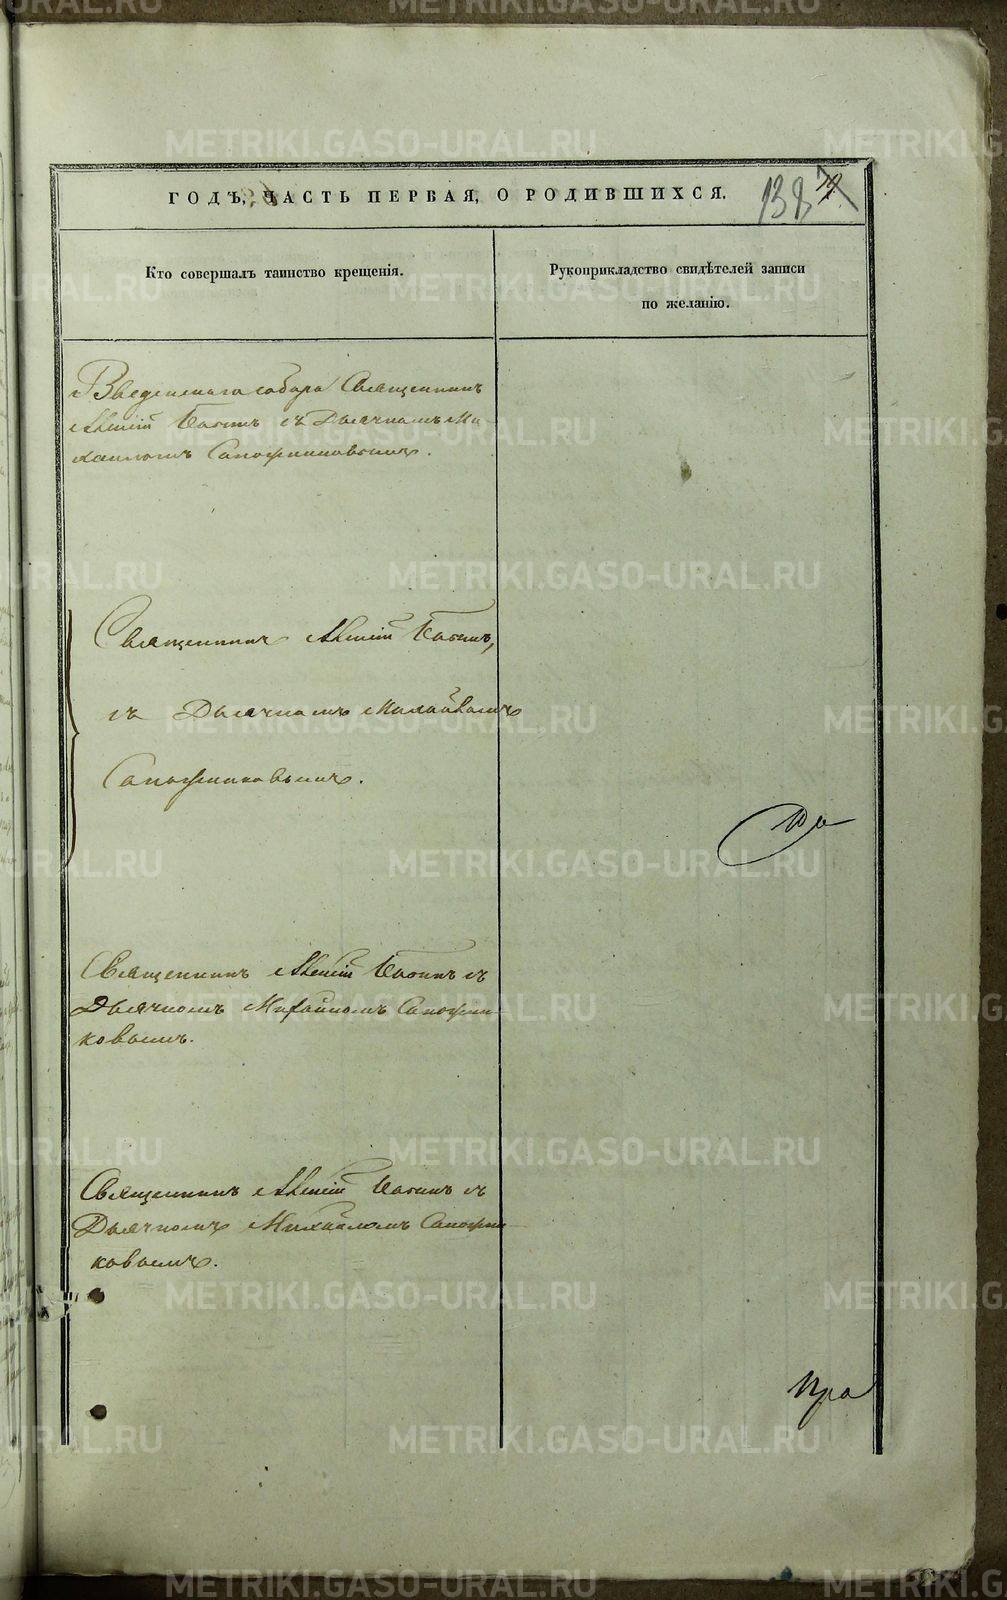 ГОДЪ, ЧАСТЬ ПЕРВАЯ, О РОДИВШИХСЯ.
138
Кто совершалъ таинство крещенія.
Рукоприкладство свидѣтелей записи
по желанію.
Введенскаго собора Священникъ
съ Дьячкомъ Ми-
хаиломъ Сапожниковымъ.
Священникъ
съ Дьячкомъ Михайломъ
Сапожниковымъ.
Священникъ съ
Дьячкомъ Михайломъ Сапожни
ковымъ.
Священникъ съ
Дьячкомъ Михайломъ Сапожни
ковымъ.
METRIKI.GASO-URAL.RU